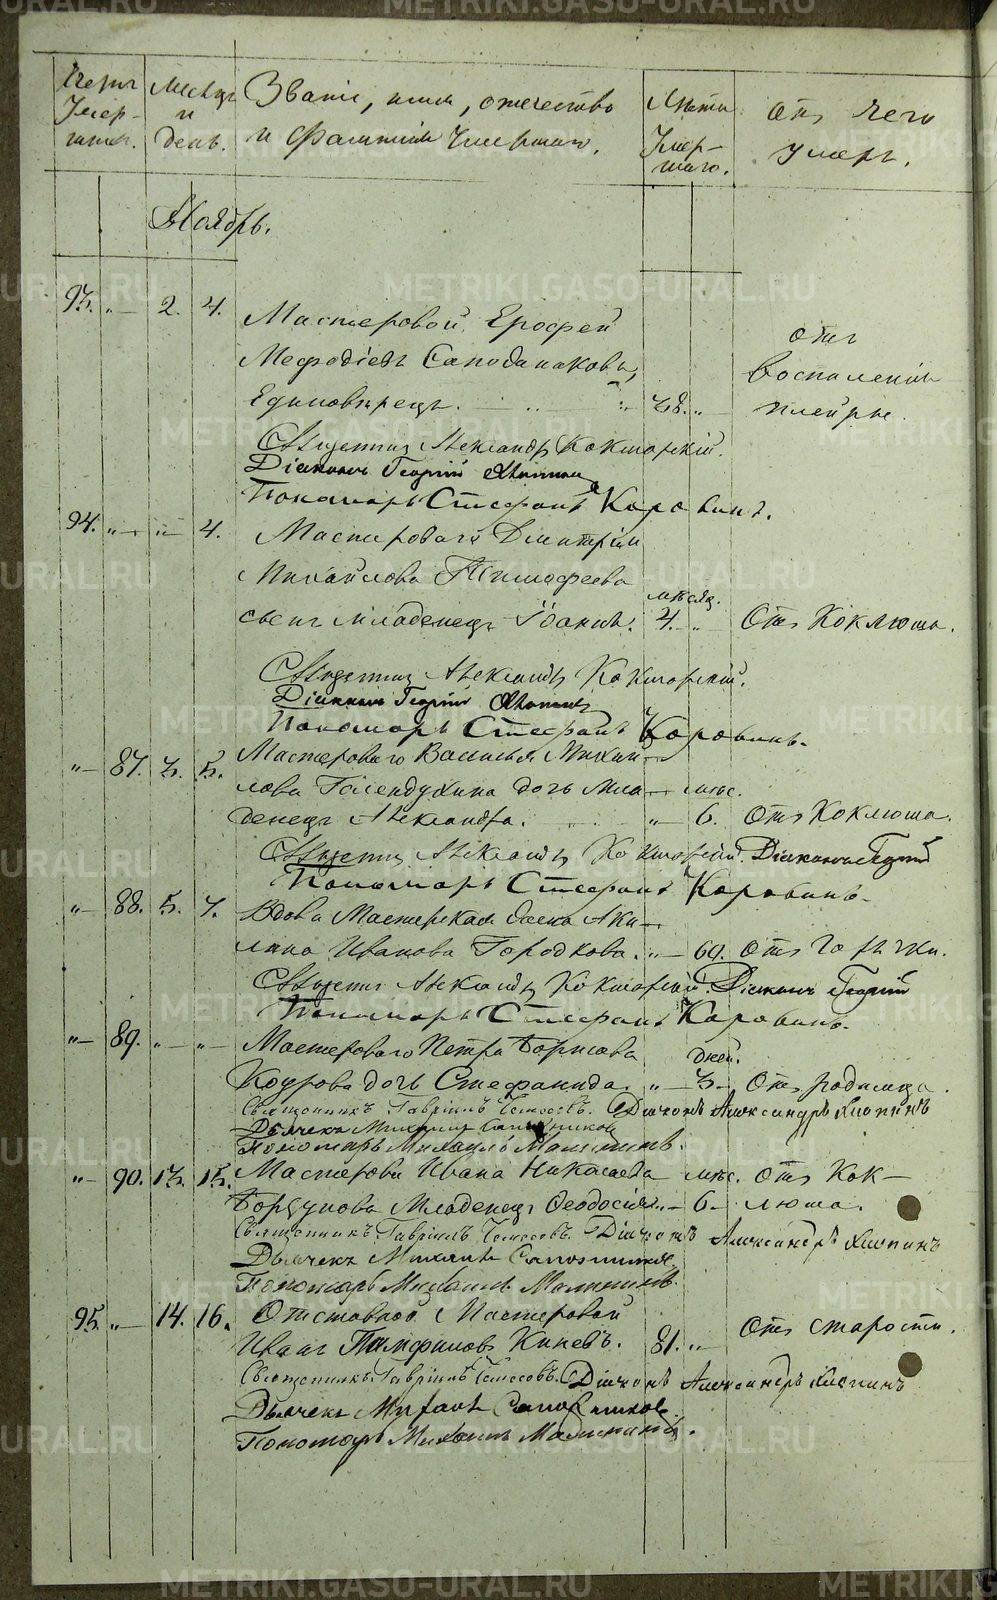 METRIKI.GASO-URAL.RU
Счетъ Умер-шихъ.
Мѣсяцъ и день.
Званіе, имя, отечество и фамилія Умершаго.
Лѣта Умер-шаго.
отъ чего умеръ.
Ноябрь.
93. „ 2. 4. Мастеровой Ерофей
Мефодіевъ
отъ
воспаленія
Единовѣрецъ. „ 38. „ плейры.
Священникъ Александръ Кокшарскій.
Діаконъ Георгій
Пономарь Стефанъ Коровинъ.
94. „ „ 4. Мастероваго Димитрія
Михайлова Тимофеева
мѣсяц.
сынъ младенецъ Іоаннъ. 4. „ Отъ Коклюша.
Священникъ Александръ Кокшарскій.
Діаконъ Георгій
Пономарь Стефанъ Коровинъ.
„ 87. 3. 5. Мастероваго Василья Михай-
лова дочь мла- мѣс.
денецъ Александра. „ 6. Отъ Коклюша.
Священникъ Александръ Кокшарскій. Діаконъ Георгій
Пономарь Стефанъ Коровинъ.
„ 88. 5. 7. Вдова Мастерская жена Аки-
лина Иванова Городкова. „ 69. Отъ горячки.
Священникъ Александръ Кокшарскій. Діаконъ Георгій
Пономарь Стефанъ Коровинъ.
„ 89. „ „ Мастероваго Петра Борисова дней.
дочь Стефанида. „ 3. Отъ родимца.
Священникъ Гавріилъ Діаконъ Александръ Хлопинъ
Дьячекъ Михаилъ Сапожников
Пономарь Михаилъ Малышинъ.
„ 90. 13. 15. Мастерова Ивана мѣс. отъ Кок-
Младенецъ Феодосія „ 6. люша.
Священникъ Гавріилъ Діаконъ Александръ Хлопинъ
Дьячекъ Михаилъ Сапожников
Пономарь Михаилъ Малышинъ.
95. „ 14. 16. Отставной Мастеровой
Иванъ Памфиловъ 81. „ Отъ старости.
Священникъ Гавріилъ Діаконъ Александръ Хлопинъ
Дьячекъ Михаилъ Сапожников
Пономарь Михаилъ Малышинъ.
METRIKI.GASO-URAL.RU